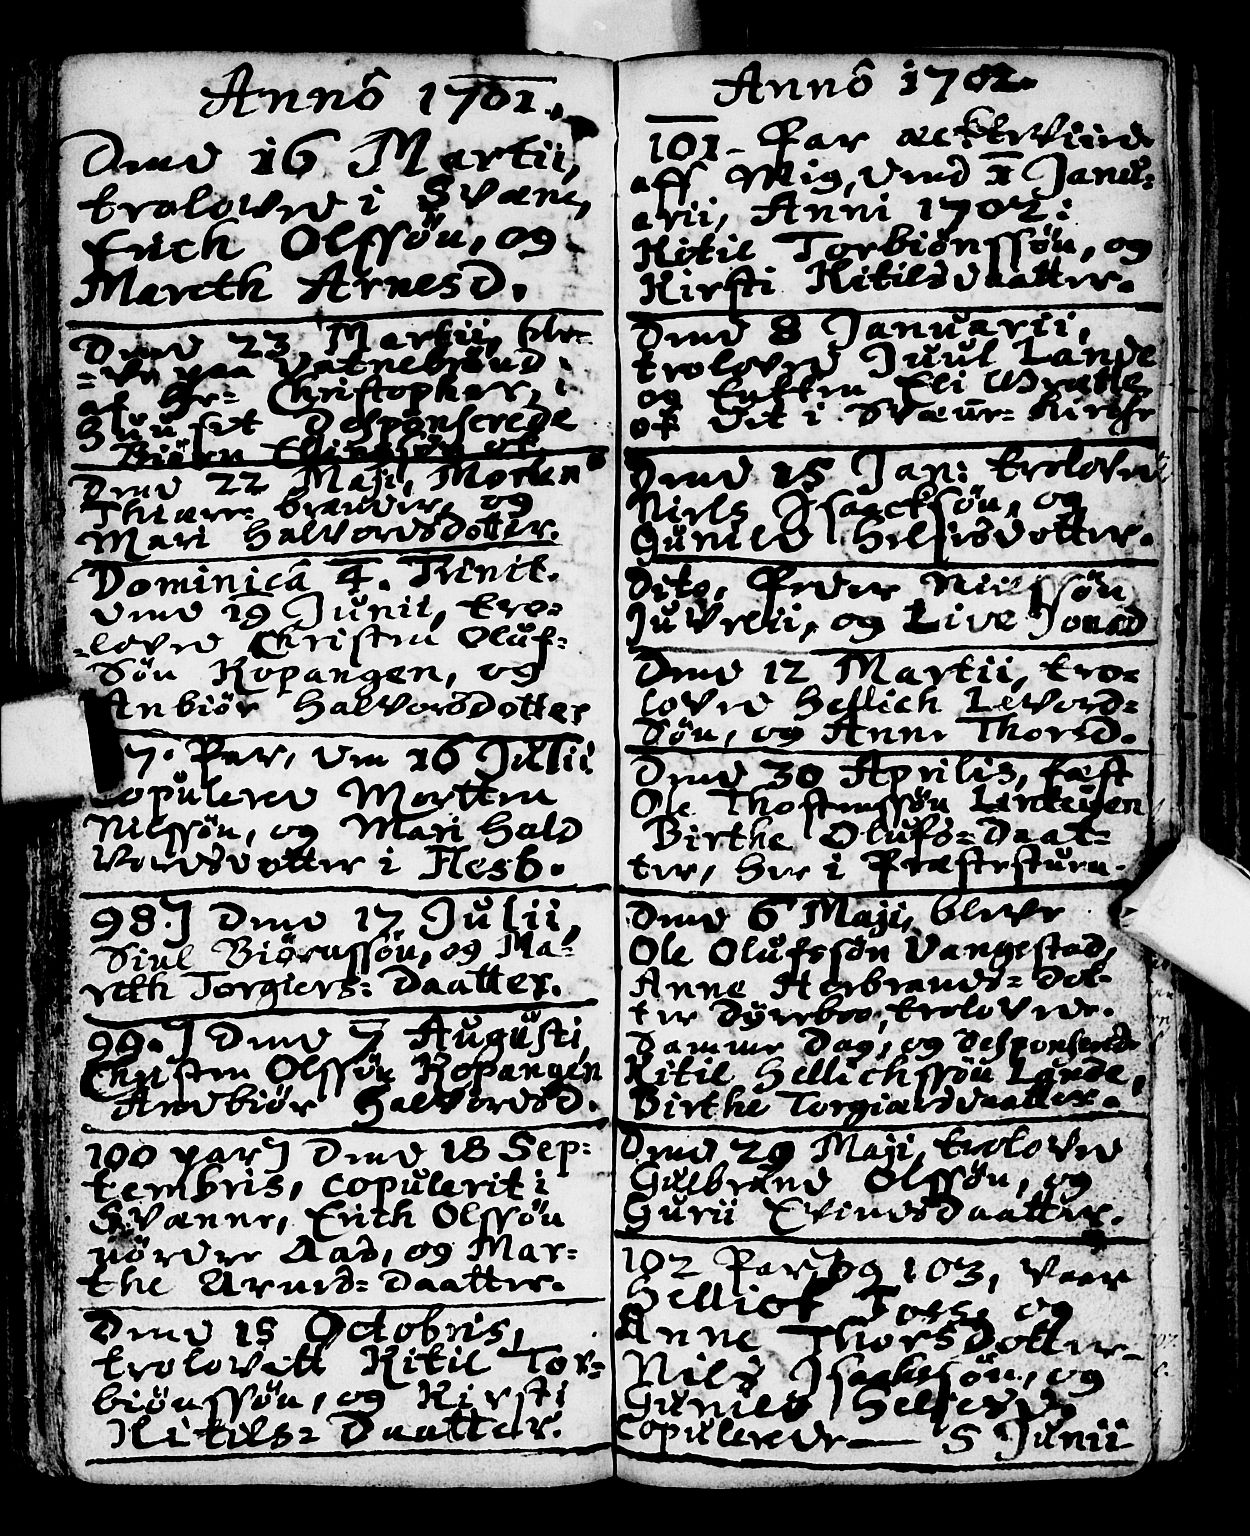 Annô 1701.,
Dmd 16 Martii,
troloved i Svæne,
Erich Olssøn, og
Mareth Arnesd.
Dmd 23 Martii, ble-
-ve paa Vatnebrønd
af Hr: Christopher, i
desponserede
Biørn
Dmd 22 Maji, Morten
og
Mari Halvordsdotter.
Dominicâ 4. Trinit.
Dmd 19 Junii, tro-
-loved Christen Oluf-
Søn Kopangen, og
Anbiør Halvorsdotter
7. Par, den 16 Julii
Copulered Morten
Nilssøn, og Mari Hald
Vordsdotter i Flesb.
98.] Dmd 17 Julii,
Siul Biørnssøn, og Ma-
reth Torgiers- Daatter.
99.] Dmd 7 Augusti,
Christen Olssøn Kopangen
Andbiør Halvordsd.
100 par] Dmd 18 Sep-
tembris, Copulerit i
Svænne, Erich Olssøn
nørdre Aas, og Mar-
the Arnes- Daatter.
Dmd 15 Octobris,
trolovett Kitil Tor-
biønssøn, og Kirsti
Kitils- Daatter.
Annô 1702.
101- Par
aff Mig, Dmd 1 Janu-
arii, Anni 1702:
Kitil Torbiønssøn, og
Kirsti Kitilsdaatter.
Dmd 8 Januarii,
troloved Juul Lande
og Eli
i Svæne- Kirche
Dmd 15 Jan: troloved
Niels Isaacksøn, og
Gunild Helgesdotter.
Dito, Peder Nielssøn
og Live Jonsd
Dmd 12 Martii, tro-
loved Hellich Levord-
Søn, og Anne Thorsd.
Dmd 30 Aprilis, fæst
Ole
Birthe Olufs- Daat-
ter, her i Præstestuen.
Dmd 6 Maji, bleve
Ole Olufssøn Vangestad,
Anne Herbrands- Dot-
ter Dyrebo, trolovede.
Samme Dag, og desponserede
Kitil Hellichssøn Lande,
Birthe Torgiersdaatter.
Dmd 29 Maji, troloved
Gulbrand Olssøn, og
Gurii Evindsdaatter.
102 Par, og 103, vaar
Hellich og
Anne Thorsdotter-
Nils Isaakssøn, og
Gunild Helgesd.
Copulerede — 5 Junii